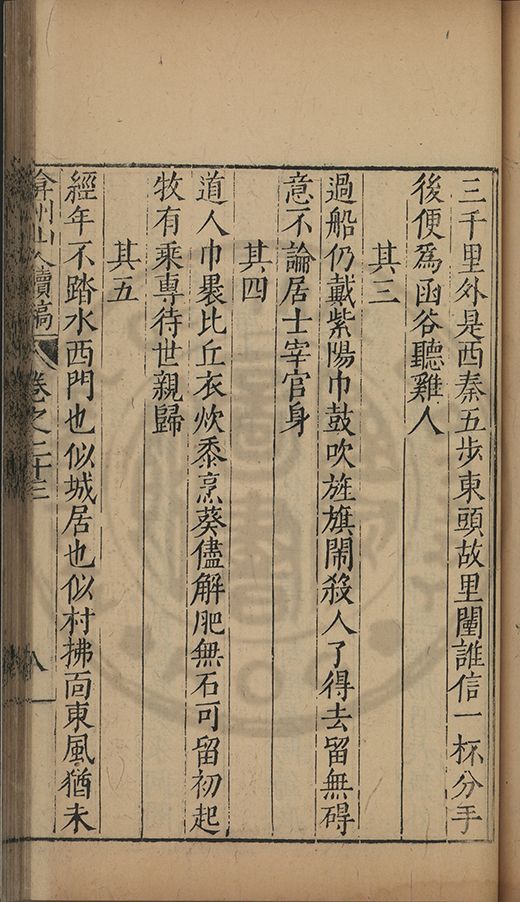 三千里外是西秦五步東頭故里闉誰信一杯分手
後便爲函谷聽雞人
其三
過船仍戴紫陽巾鼓吹旌旗鬧殺人了得去留無碍
意不論居士宰官身
其四
道人巾褁比丘衣炊黍烹葵儘解肥無石可留初起
牧有乘專待世親歸
其五
經年不踏水西門也似城居也似村拂靣東風猶未
弇州山人續稿 卷之二十三 八